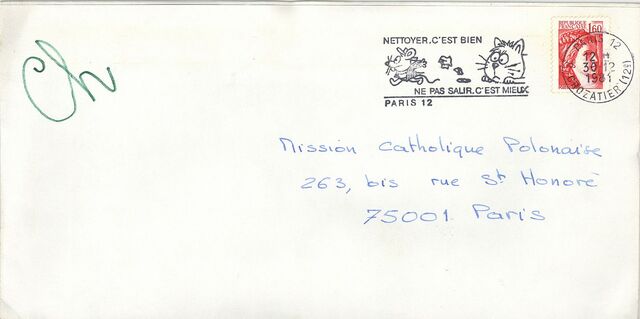 NETTOYER.C'EST BIEN
NE PAS SALIR.C'EST MIEUX
PARIS 12
REPUBLIQUE
FRANÇAISE
1,60
PARIS 12
12 H
30-12
1981
R. CROZATIER (12e)
Ch
Mission Catholique Polonaise
263, bis rue St Honoré
75001 Paris